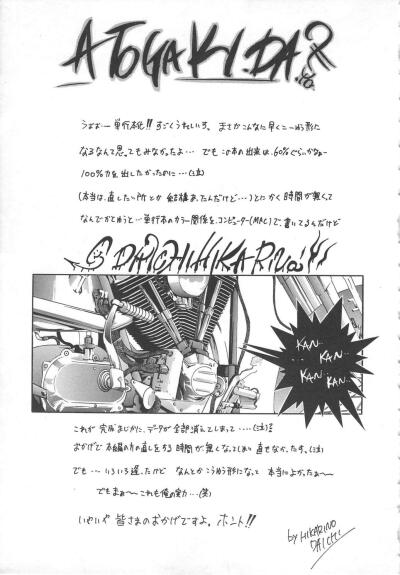 ATOGAKI.DA
うおぉー 単行本化!! すごくうれしいっす。まさかこんなに早くこーゆう形に
なるなんて思ってもみなかったよ… でもこの本の出来は、60%ぐらいかなぁー
100%力を出したかったのに…(泣)
(本当は、直したい所とか結構あったんだけど…)とにかく時間が無くて
なんでかてゆうと…単行本のカラー関係を、コンピューター(MAC)で、書いてるんだけど
DAICHI HIKARINO
KAN…
KAN…
KAN…
KAN…
これが完成まじかに、データが全部消えてしまって‥‥(泣)
おかげで本編の方の直しをする時間が無くなってしまい直せなかったす。(泣)
でも…いろいろ遅れたけどなんとかこうゆう形になって本当によかったぁ〜
でもまぁ〜これも俺の実力…(笑)
いやいや皆さまのおかげですよ。ホント!!
by HIKARINO
DAICHI